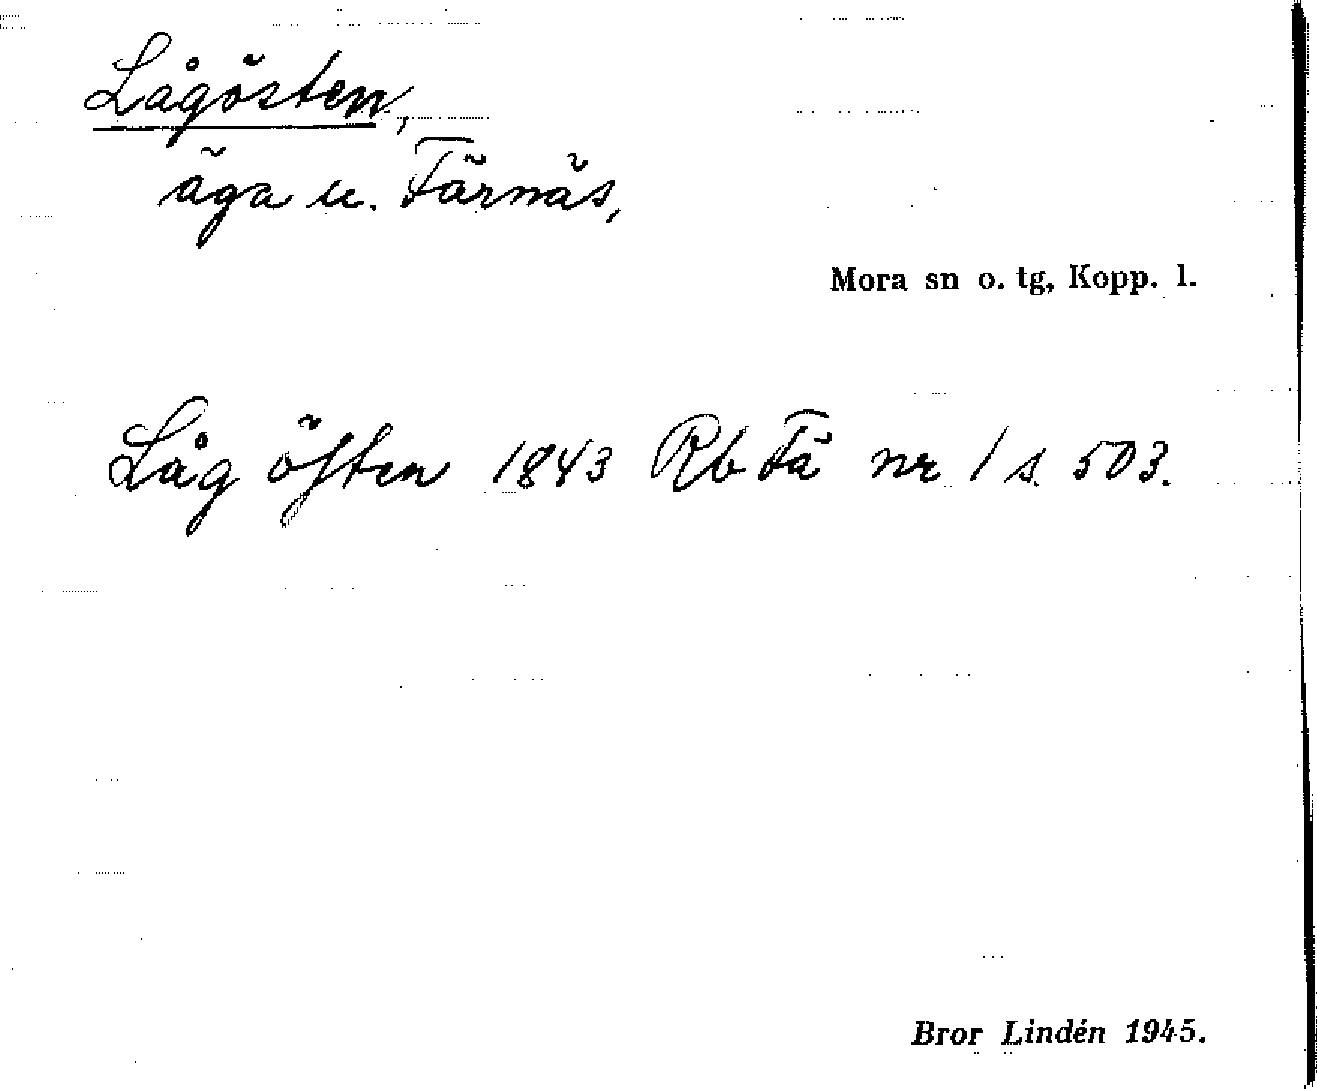 Lågösten,
äga u. Färnäs,
Mora sn o. tg, Kopp. l.
Låg öſten 1843 Rb Fä nr 1 s. 503.
Bror Lindén 1945.